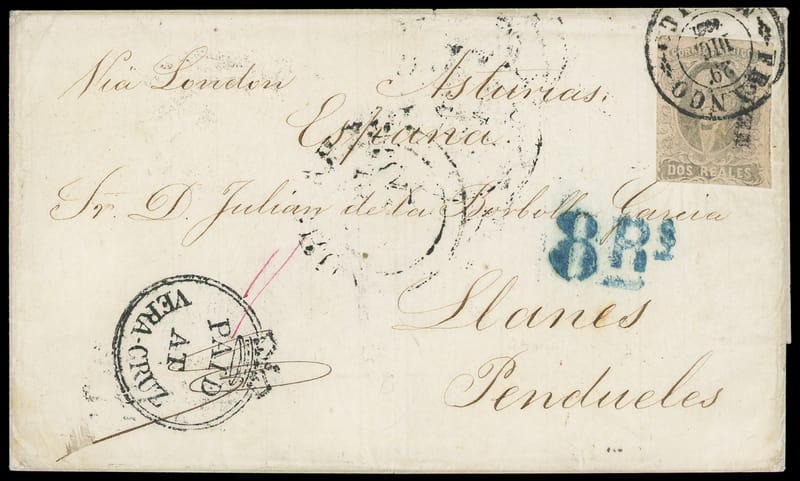 Via London Asturias.
España.
Sr. D. Julián de la Borbolla Garcia
Llanes
Pendueles
8Rs
PAID
AT
VERA-CRUZ
FRANCO
29
DOS REALES